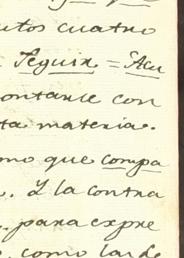 utos cuatro
Seguir = Acu
ontarle con
ta materia.
mo que compa
. Y la contra
. para expre
. como larde